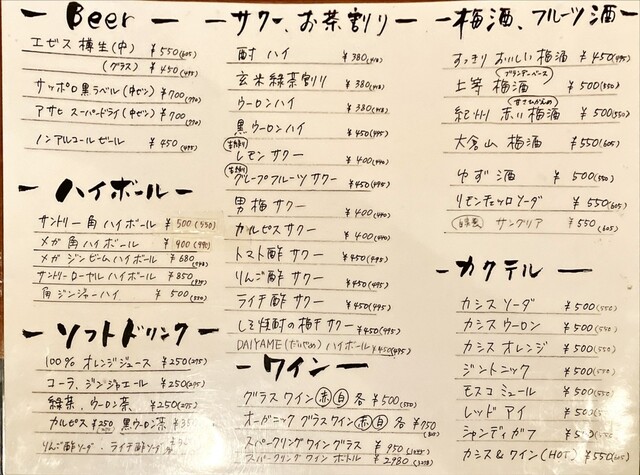 Beer
エビス 樽生(中) ¥550(605)
(グラス) ¥450(495)
サッポロ黒ラベル(中ビン) ¥700(770)
アサヒ スーパードライ(中ビン) ¥700(770)
ノンアルコールビール ¥450(495)
ハイボール
サントリー角ハイボール ¥500(550)
メガ角ハイボール ¥900(990)
メガジンビームハイボール ¥680(748)
サントリーローヤルハイボール ¥850
角ジンジャーハイ ¥500(550)
ソフトドリンク
100% オレンジジュース ¥250(275)
コーラ、ジンジャエール ¥250(275)
緑茶、ウーロン茶 ¥250(275)
カルピス¥250 黒ウーロン茶
りんご酢ソーダ・ライチ酢ソーダ
サワー、お茶割り
酎ハイ ¥380(418)
玄米緑茶割り ¥380(418)
ウーロンハイ ¥380(418)
黒ウーロンハイ ¥450(495)
レモンサワー ¥400(440)
グレープフルーツサワー ¥450(495)
男梅サワー ¥400(440)
カルピスサワー ¥400(440)
トマト酢サワー ¥450(495)
りんご酢サワー ¥450(495)
ライチ酢サワー ¥450(495)
しそ焼酎の梅干サワー ¥450(495)
DAIYAME(だいやめ)ハイボール ¥450(495)
ワイン
グラスワイン 赤 白 各¥500(550)
オーガニックグラスワイン 赤 白 各
スパークリングワイングラス ¥950
スパークリングワインボトル ¥2980
梅酒、フルーツ酒
すっきりおいしい梅酒 ¥450(495)
ブランデーベース
上等梅酒 ¥500(550)
甘さひかえめ
紀州赤い梅酒 ¥500(550)
大倉山梅酒 ¥550(605)
ゆず酒 ¥500(550)
リモンチェッロソーダ ¥550(605)
自家製 サングリア ¥550(605)
カクテル
カシスソーダ ¥500(550)
カシスウーロン ¥500(550)
カシスオレンジ ¥500(550)
ジントニック ¥500(550)
モスコミュール ¥500(550)
レッドアイ ¥500(550)
シャンディガフ ¥500(550)
カシス&ワイン(HOT) ¥550(605)